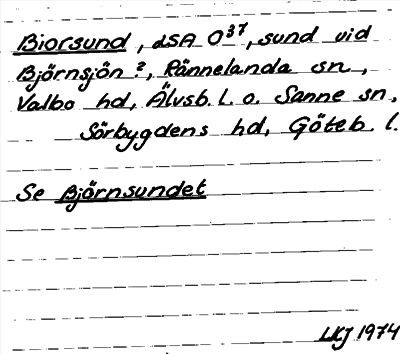 Biorsund, LSA O37, sund vid
Björnsjön?, Rännelanda sn,
Valbo hd, Älvsb. l. o. Sanne sn,
Sörbygdens hd, Göteb. l.
Se Björnsundet
LKJ 1974